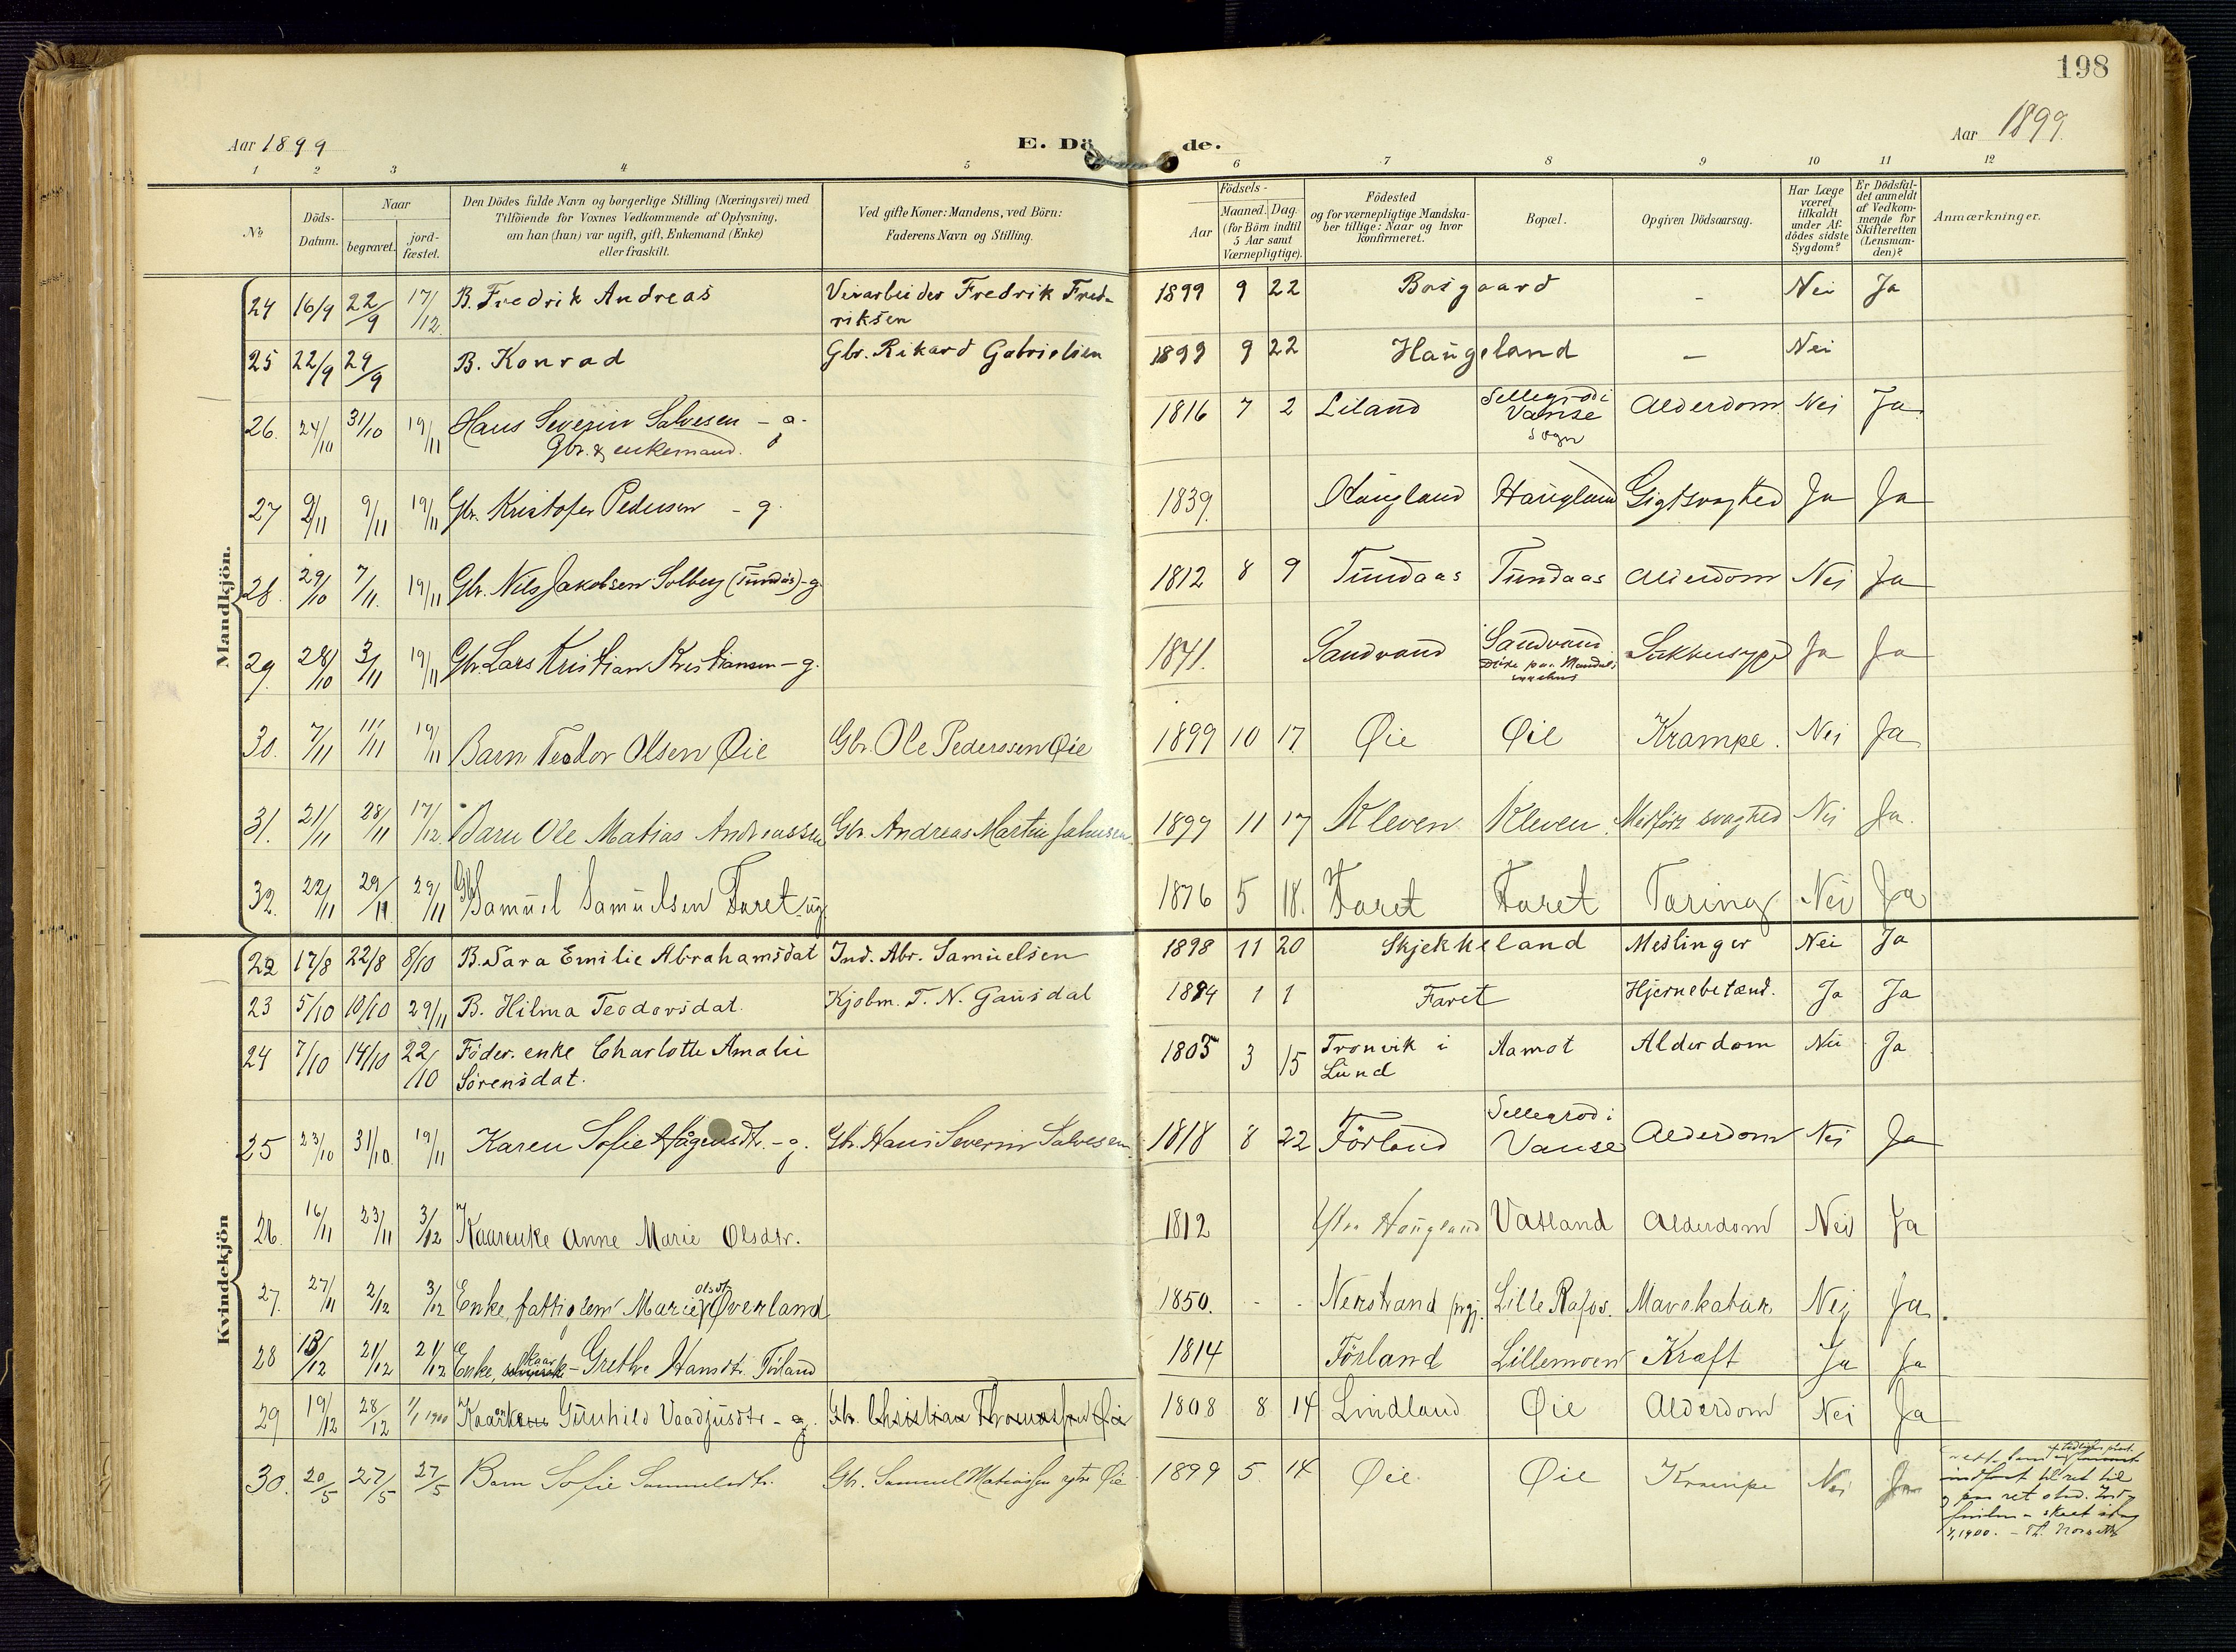 198
Aar 1899
E. Dö de.
Aar 1899.
1 2 3 4 5 6 7 8 9 10 11 12
№
Döds-Datum.
Naar
begravet.
jord-fæstet.
Den Dödes fulde Navn og borgerlige Stilling (Næringsvei) med
Tilföiende for Voxnes Vedkommende af Oplysning,
om han (hun) var ugift, gift, Enkemand (Enke)
eller fraskilt.
Ved gifte Koner: Mandens, ved Börn:
Faderens Navn og Stilling.
Födsels-
Aar
Maaned. Dag.
(for Börn indtil
5 Aar samt
Værnepligtige).
Födested
og for værnepligtige Mandska-
ber tillige: Naar og hvor
konfirmeret.
Bopæl.
Opgiven Dödsaarsag.
Har Læge
været
tilkaldt
under Af-
dödes sidste
Sygdom?
Er Dödsfal-
det anmeldt
af Vedkom-
mende for
Skifteretten
(Lensman-
den)?
Anmærkninger.
Mandkjön.
24 16/9 22/9 17/12 B. Fredrik Andreas Fredrik Fred-
riksen 1899 9 22 Bosgaard - Nei Ja
25 22/9 29/9 B. Konrad Gbr. Rikard Gabrielsen 1899 9 22 Haugeland - Nei
26. 24/10 31/10 19/11 Hans Severin Salvesen 1816 7 2 Liland Sellegrod i
Vanse
Sogn Alderdom Nei Ja
Gbr. & enkemand.
27 9/11 19/11 Gbr. Kristofer Pedersen - g. 1839. Haugland Haugland Gigtsvaghed Ja Ja
28. 29/10 7/11. 19/11 Gbr. Nils Jakobsen Solberg (Tundås) - g. 1812 8 9 Tundaas Tundaas Alderdom Nei Ja
29. 28/10 3/11 19/11 Gbr. Lars Kristian Kristiansen - g. 1841. Sandvand Sandvand Sukkersyge Ja Ja
30. 7/11 11/11 19/11 Barn Teodor Olsen Øie Gbr. Ole Pederssen Øie 1899 10 17 Øie Øie Krampe. Nei Ja
31. 21/11 28/11 17/12. Barn Ole Matias Andreassen Gbr. Andreas Martin 1899 11 17 Kleven Kleven. Medförs svaghed Nei Ja.
32. 22/11 29/11 29/11 Samuel Samuelsen Faret ug 1876 5 18. Faret Faret Tæring Nei Ja
Kvindekjön
22 17/8 22/8 8/10 B. Sara Emilie Abrahamsdat Ind. Abr. Samuelsen 1898 11 20 Skjekkeland Meslinger Nei Ja
23 5/10 10/10 29/11 B. Hilma Teodorsdat. Kjobm. T. N. Gausdal 1894 1 1 Faret Hjernebetænd. Ja Ja
24 7/10 14/10 22/10 Föder. enke Charlotte Amalie
Sörensdat. 1805 3 15 Tronvik i
Lund Aamot Alderdom Nei Ja
25 23/10 31/10. 19/11 Karen Sofie - g. Gb. Hans Severin Salvesen. 1818 8 22 Förland Sellegrod i
Vanse Alderdom Nei Ja
26. 16/11 23/11 3/12 Kaarenke Anne Marie Olsdtr. 1812 Haugland Vatland Alderdom Nei Ja
27. 27/11 2/12 3/12 Enke, fattiglem Marie Olsdt. Øverland 1850. - - Nerstrand prgj. Lille Rafos. Mavekatar. Nej Ja.
28 13/12 21/12 21/12 Enke, Kaar - Grethe Hansdtr. Förland 1814 Förland Lillemoen Kræft Ja Ja
29 19/12 28/12 1/1 1900 Gunhild - g. Gb. Christian Øie 1808 8 14 Lindland Øie Alderdom Nei Ja
30. 20/5 27/5 27/5 Barn Sofie Samuelsdtr. Gb. Samuel Øie 1899 5. 14 Øie Øie Krampe Nei Ja